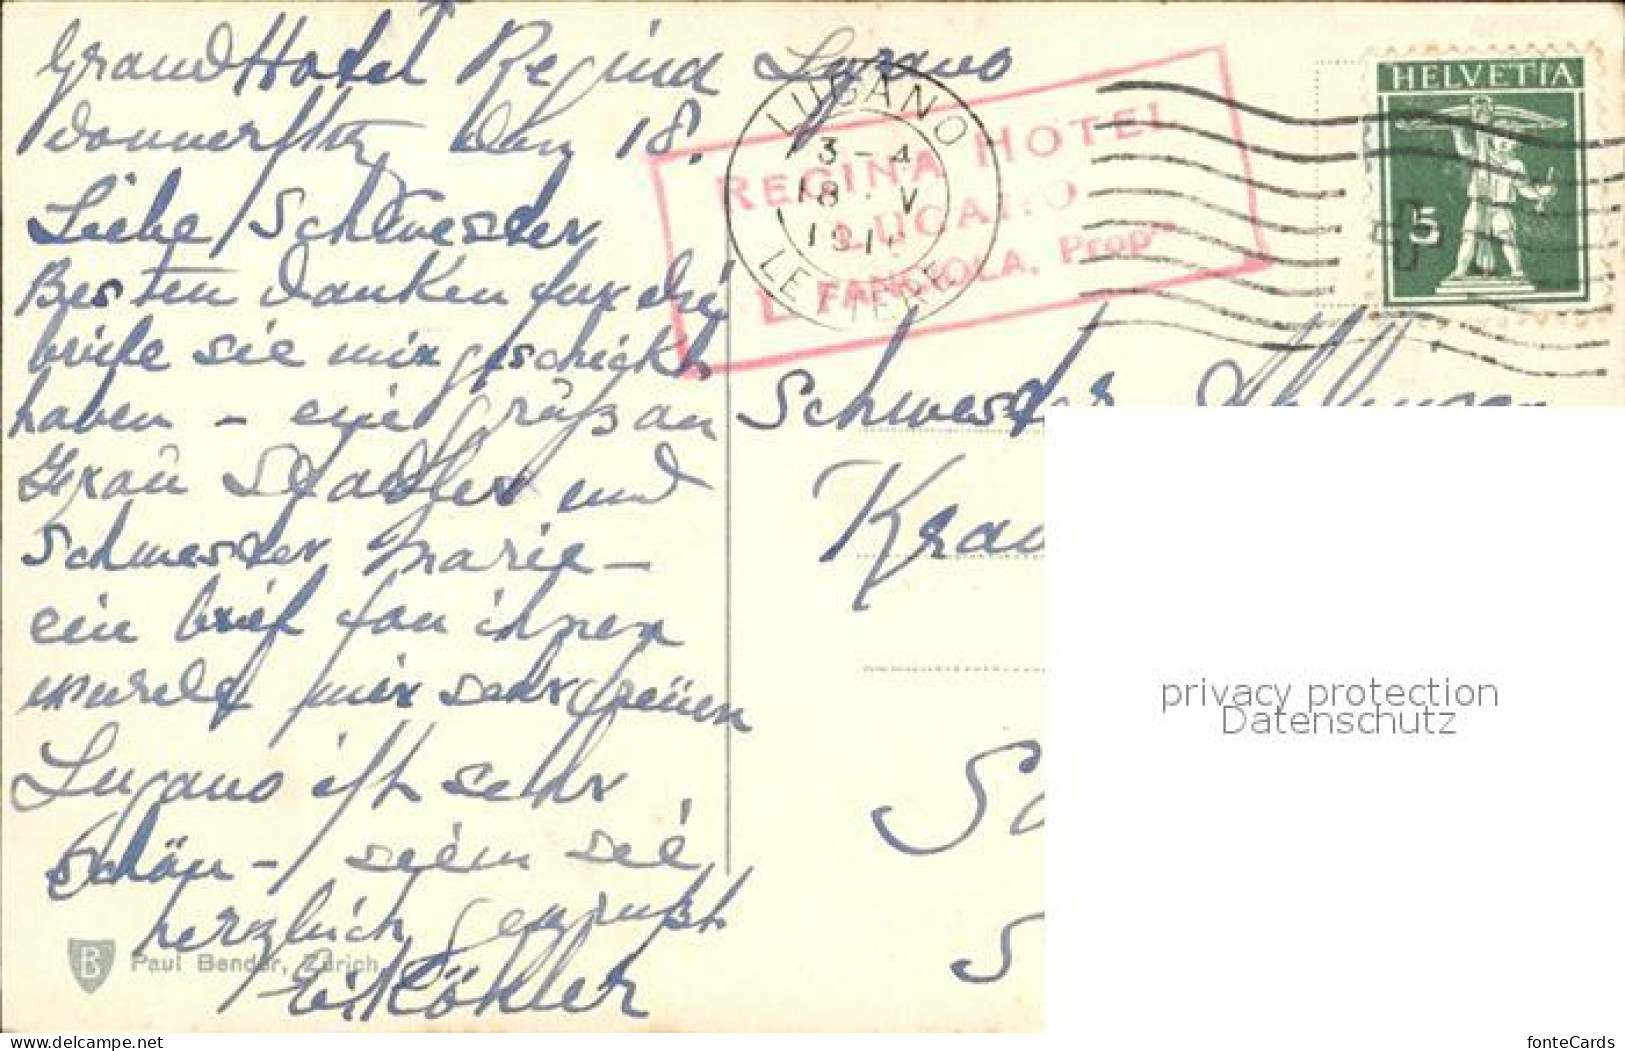 Grand Hotel Regina Lugano
Donnerstag Den 18.
Liebe Schwester
Besten Danken fur die
briefe sie mir geschickt
haben – eine grüß an
Frau Stadler und
Schwester Marie –
ein brief fon ihnen
wurde mir sehr freuen
Lugano ist sehr
schön – seien sie
herzlich gegrußt
Köhler
B Paul Bender, Zürich
REGINA HOTEL
LUGANO
FANCIOLA, Prop
LUGANO
3 - 4
18. V
191
LETTERE
HELVETIA
5
Schwester
privacy protection
Datenschutz
www.delcampe.net
fonteCards